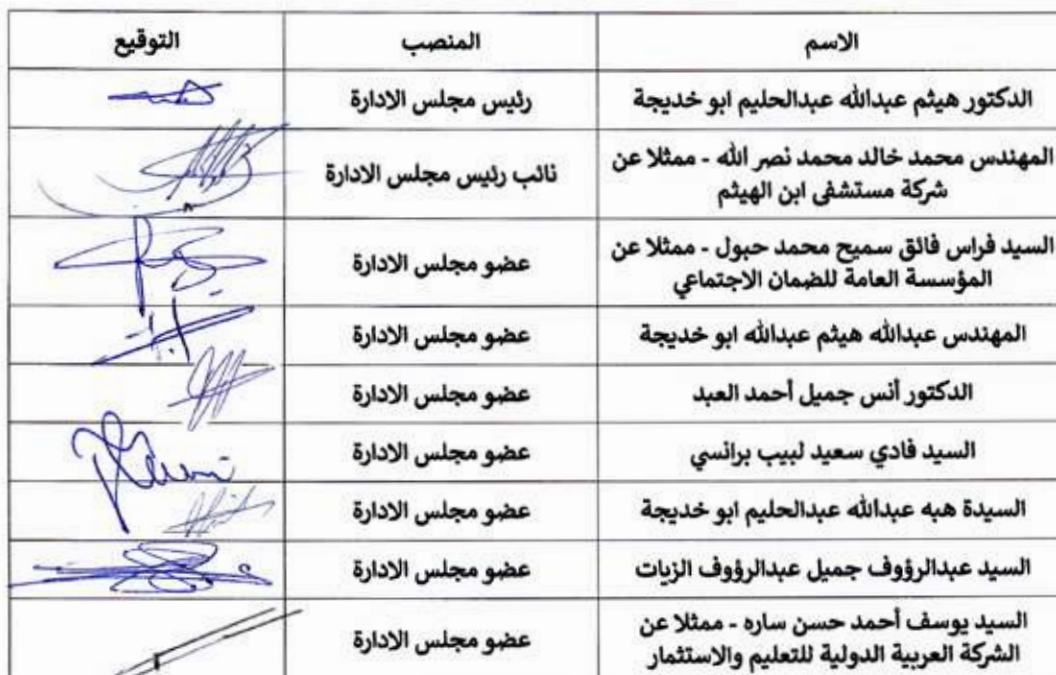 الاسم المنصب التوقيع
الدكتور هيثم عبدالله عبدالحليم ابو خديجة رئيس مجلس الادارة
المهندس محمد خالد محمد نصر الله - ممثلا عن
شركة مستشفى ابن الهيثم
نائب رئيس مجلس الادارة
السيد فراس فائق سميح محمد حبول - ممثلا عن
المؤسسة العامة للضمان الاجتماعي
عضو مجلس الادارة
المهندس عبدالله هيثم عبدالله ابو خديجة عضو مجلس الادارة
الدكتور أنس جميل أحمد العبد عضو مجلس الادارة
السيد فادي سعيد لبيب برانسي عضو مجلس الادارة
السيدة هبه عبدالله عبدالحليم ابو خديجة عضو مجلس الادارة
السيد عبدالرؤوف جميل عبدالرؤوف الزيات عضو مجلس الادارة
السيد يوسف أحمد حسن ساره - ممثلا عن
الشركة العربية الدولية للتعليم والاستثمار
عضو مجلس الادارة